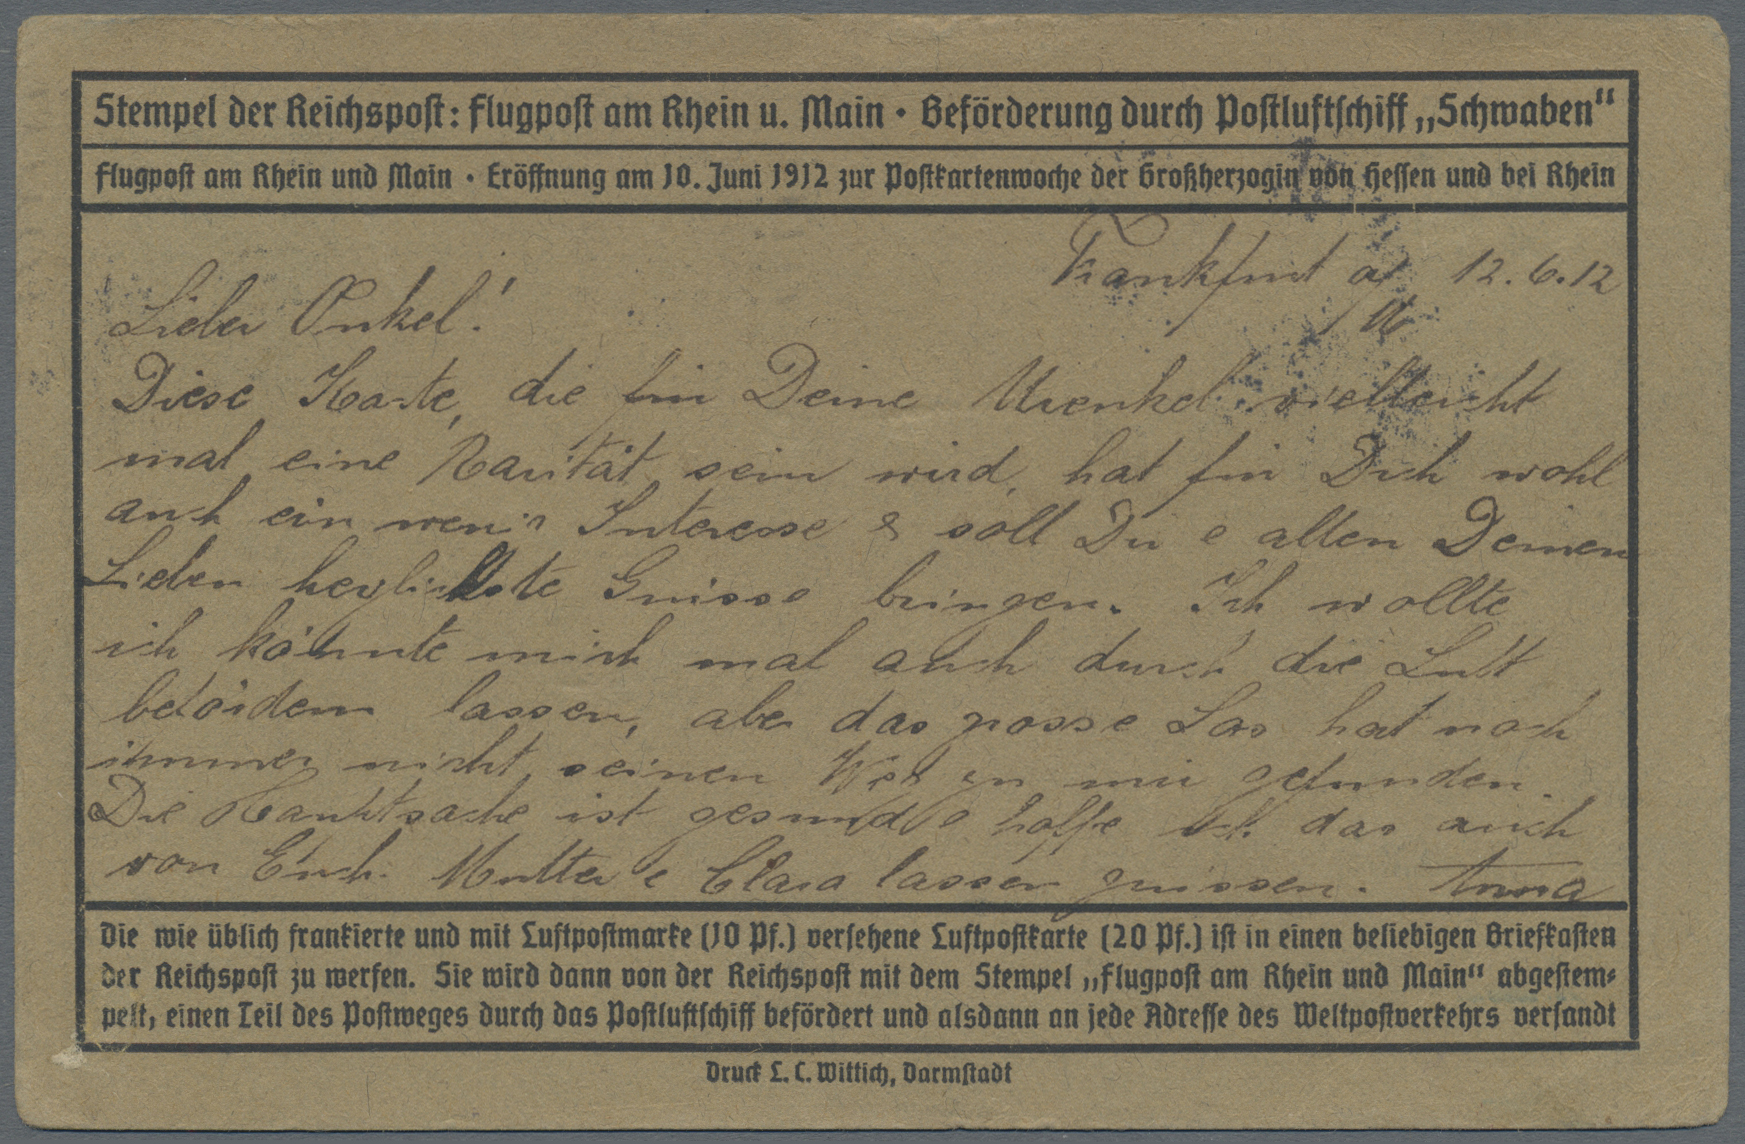 Stempel der Reichspost: Flugpost am Rhein u. Main · Beförderung durch Postluftschiff „Schwaben“
Flugpost am Rhein und Main · Eröffnung am 10. Juni 1912 zur Postkartenwoche der Großherzogin von Hessen und bei Rhein
Frankfurt a/ 12.6.12
M
Lieber Onkel!
Diese Karte, die für Deine Urenkel vielleicht
mal eine Rarität sein wird, hat für Dich wohl
auch ein wenig Interesse & soll Dir & allen Deinen
Lieben herzlichste Grüsse bringen. Ich wollte
ich könnte mich mal auch durch die Luft
befördern lassen, aber das grosse Los hat noch
immer nicht seinen Weg zu mir gefunden.
Die Hauptsache ist gesund & hoffe ich das auch
von Euch. Mutter & Clara lassen grüssen. Anna
Die wie üblich frankierte und mit Luftpostmarke (10 Pf.) versehene Luftpostkarte (20 Pf.) ist in einen beliebigen Briefkasten
der Reichspost zu werfen. Sie wird dann von der Reichspost mit dem Stempel „Flugpost am Rhein und Main“ abgestem-
pelt, einen Teil des Postweges durch das Postluftschiff befördert und alsdann an jede Adresse des Weltpostverkehrs versandt
Druck L. C. Wittich, Darmstadt